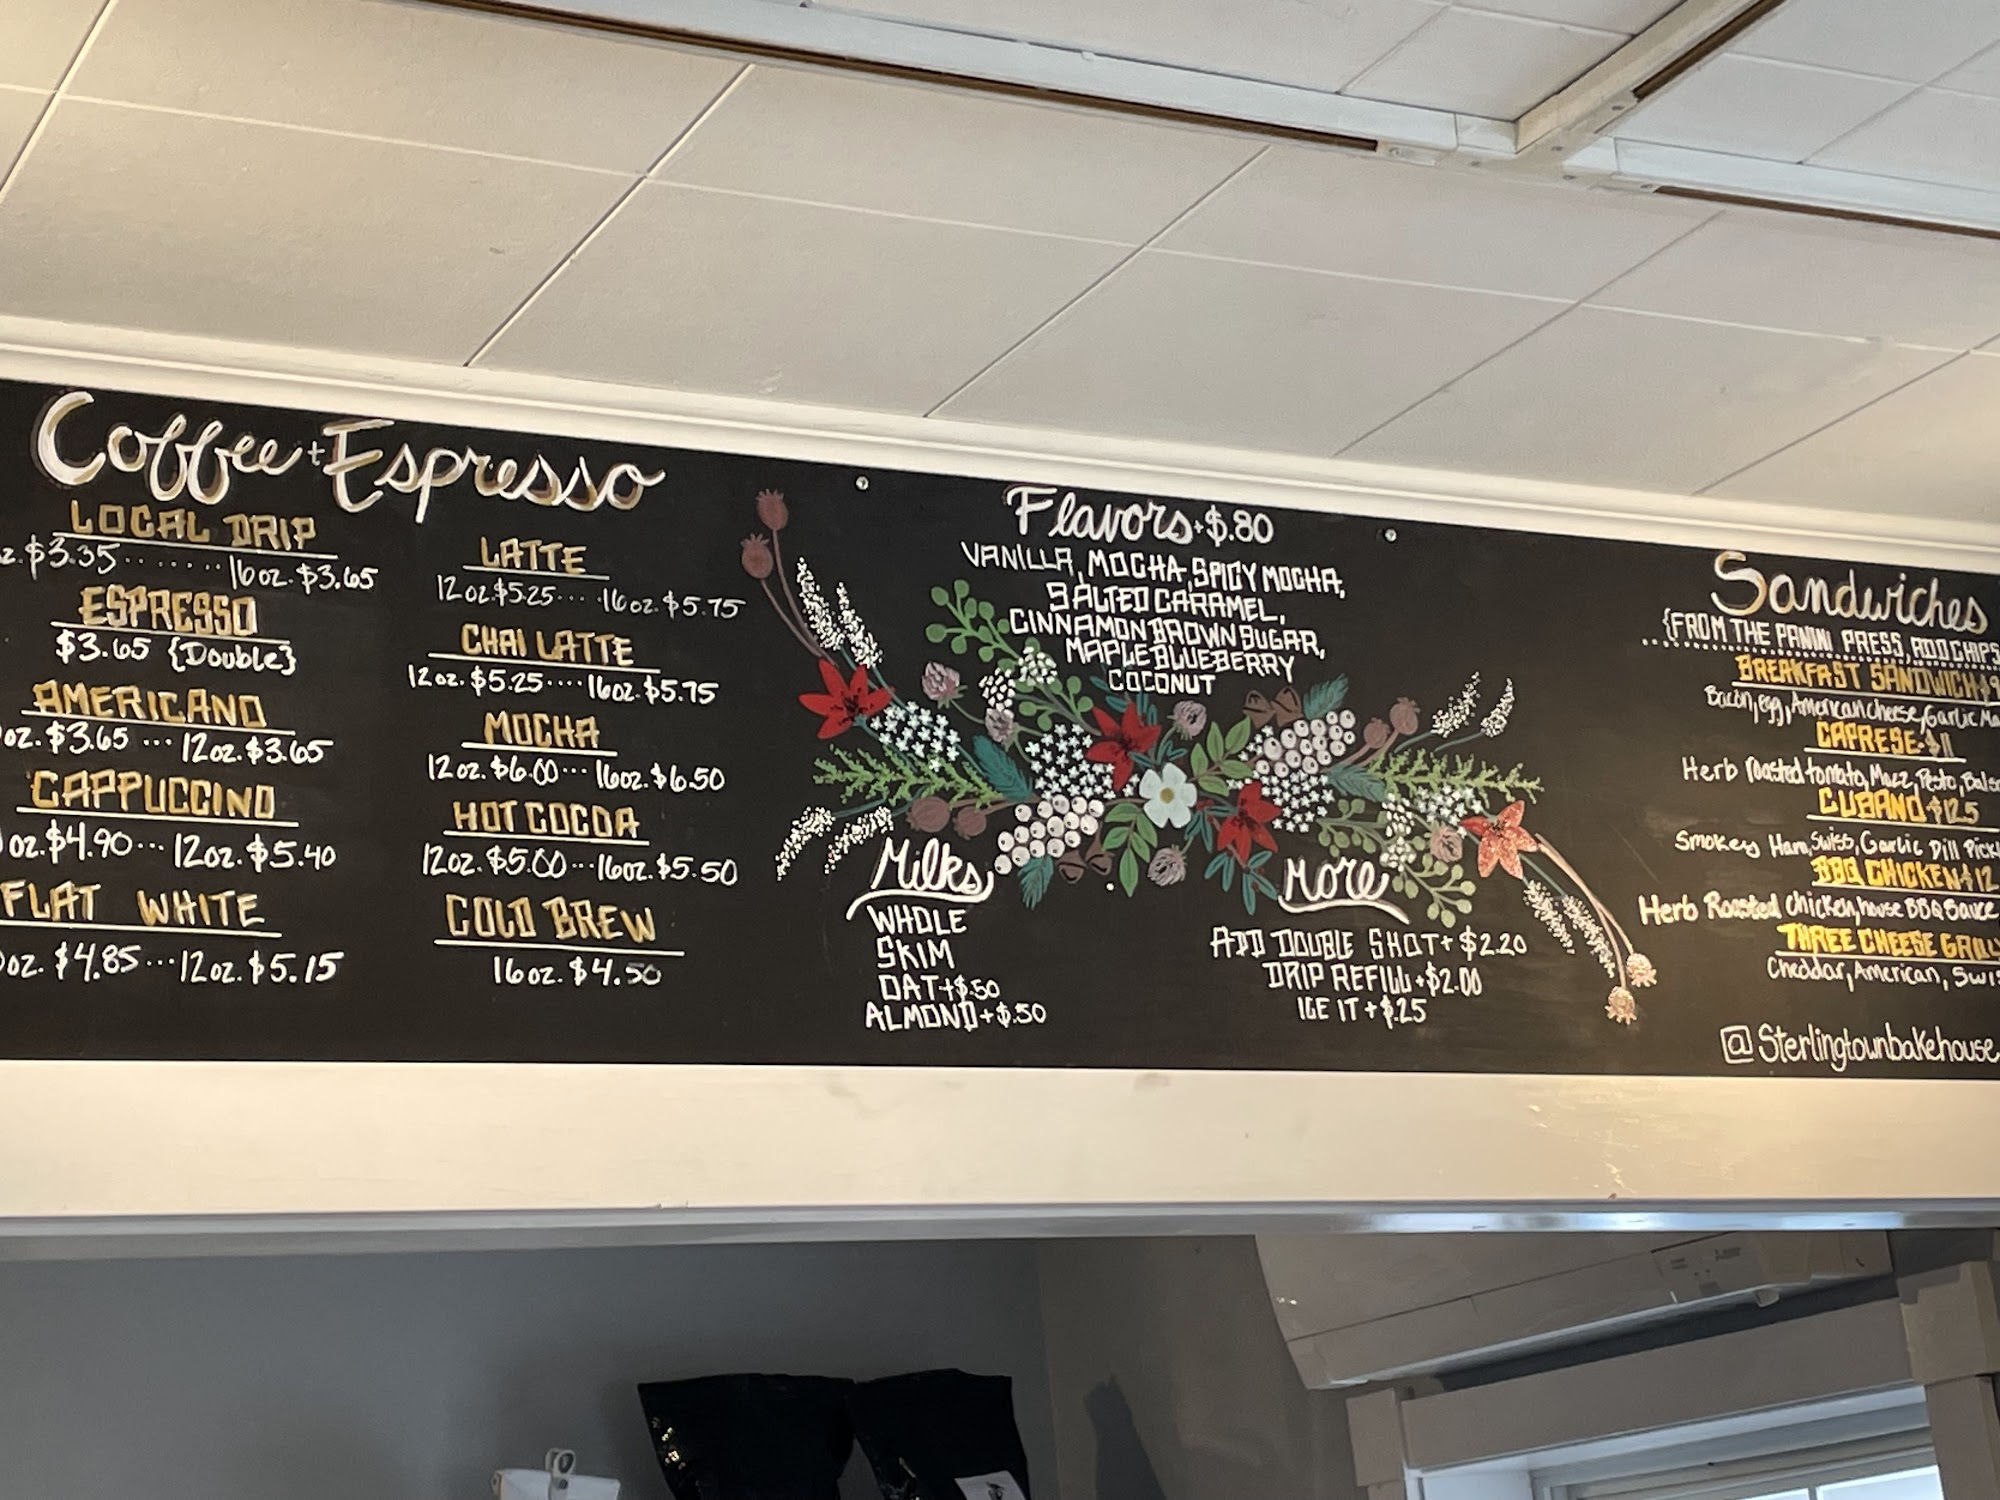 Coffee + Espresso
LOCAL DRIP
z. $3.35 ....... 16oz. $3.65
ESPRESSO
$3.65 {Double}
AMERICANO
oz. $3.65 ... 12oz. $3.65
CAPPUCCINO
oz. $4.90 ... 12oz. $5.40
FLAT WHITE
oz. $4.85 ... 12oz. $5.15
LATTE
12oz. $5.25 .... 16oz. $5.75
CHAI LATTE
12oz. $5.25 .... 16oz. $5.75
MOCHA
12oz. $6.00 ... 16oz. $6.50
HOT COCOA
12oz. $5.00 ... 16oz. $5.50
COLD BREW
16oz. $4.50
Flavors + $.80
VANILLA, MOCHA, SPICY MOCHA,
SALTED CARAMEL,
CINNAMON BROWN SUGAR,
MAPLE BLUEBERRY
COCONUT
Milks
WHOLE
SKIM
OAT + $.50
ALMOND + $.50
More
ADD DOUBLE SHOT + $2.20
DRIP REFILL + $2.00
ICE IT + $.25
Sandwiches
{FROM THE PANINI PRESS, ADD CHIPS
BREAKFAST SANDWICH
Bacon, egg, American cheese, Garlic
CAPRESE
Herb roasted tomato, Mozz, Pesto,
CUBANO $12.5
Smokey Ham, Swiss, Garlic Dill
BBQ CHICKEN $12
Herb Roasted Chicken, house BBQ Sauce
THREE CHEESE
Cheddar, American,
@Sterlingtownbakehouse